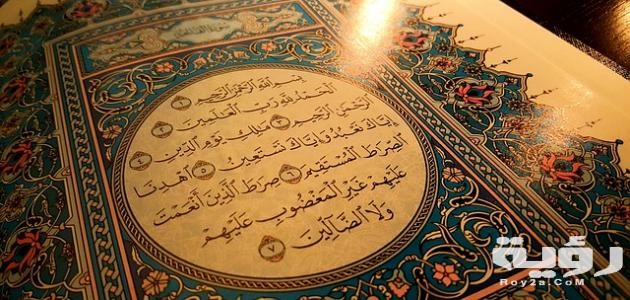 بِسْمِ اللَّهِ الرَّحْمَٰنِ الرَّحِيمِ ١
الْحَمْدُ لِلَّهِ رَبِّ الْعَالَمِينَ ٢
الرَّحْمَٰنِ الرَّحِيمِ ٣ مَالِكِ يَوْمِ الدِّينِ ٤
إِيَّاكَ نَعْبُدُ وَإِيَّاكَ نَسْتَعِينُ ٥ اهْدِنَا
الصِّرَاطَ الْمُسْتَقِيمَ ٦ صِرَاطَ الَّذِينَ أَنْعَمْتَ
عَلَيْهِمْ غَيْرِ الْمَغْضُوبِ عَلَيْهِمْ
وَلَا الضَّالِّينَ ٧
رؤية
Roy2a.CoM